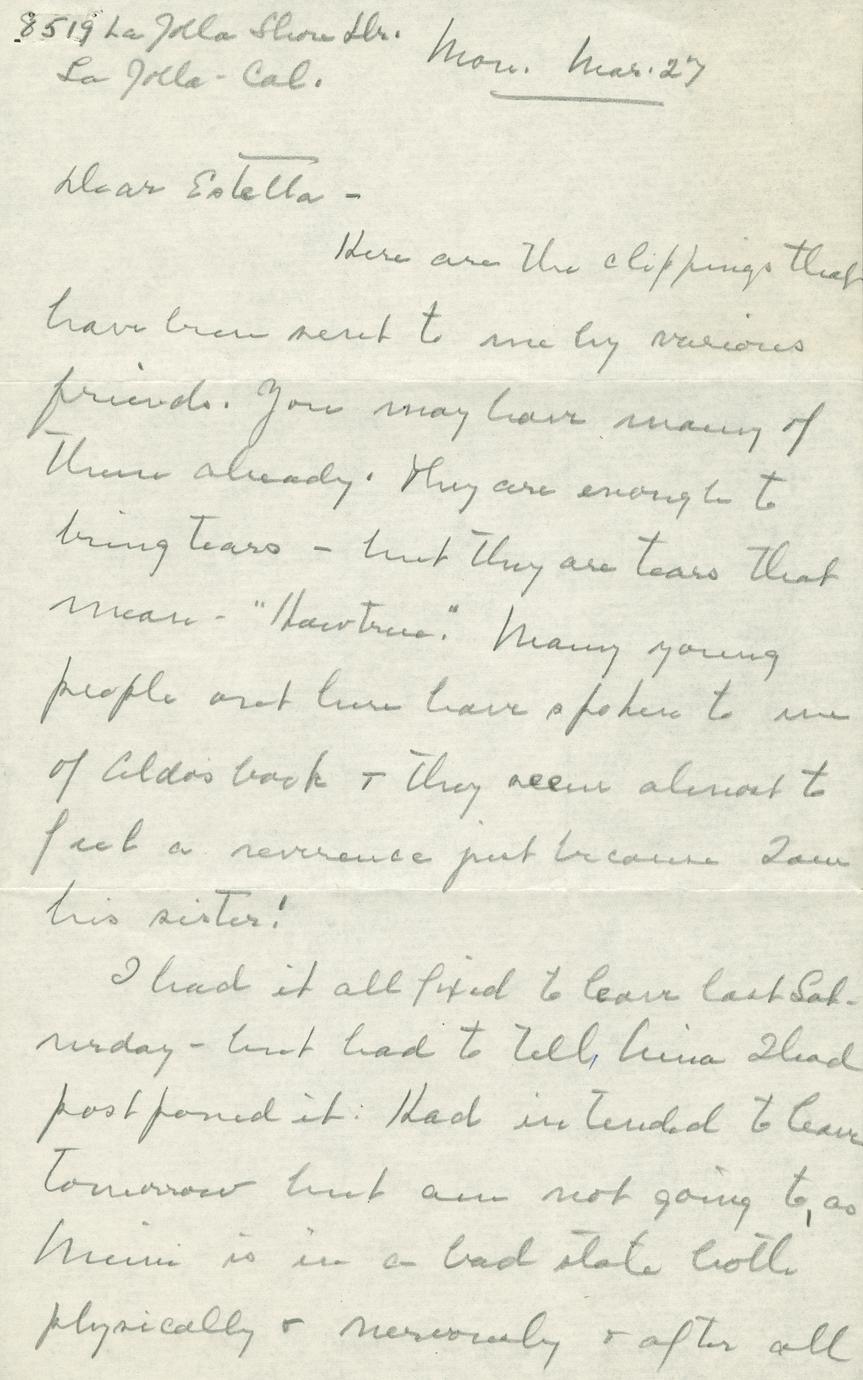 8519 La Jolla Shore Dr.
La Jolla - Cal.
Mon. Mar. 27
Dear Estella -
Here are the clippings that
have been sent to me by various
friends. You may have many of
them already. They are enough to
bring tears - but they are tears that
mean - "How true." Many young
people out here have spoken to me
of Aldo's book & they seem almost to
feel a reverence just because I am
his sister!
I had it all fixed to leave last Sat-
urday - but had to tell, Nina I had
postponed it: Had intended to leave
tomorrow but am not going to, as
is in a bad state both
physically & nervously & after all